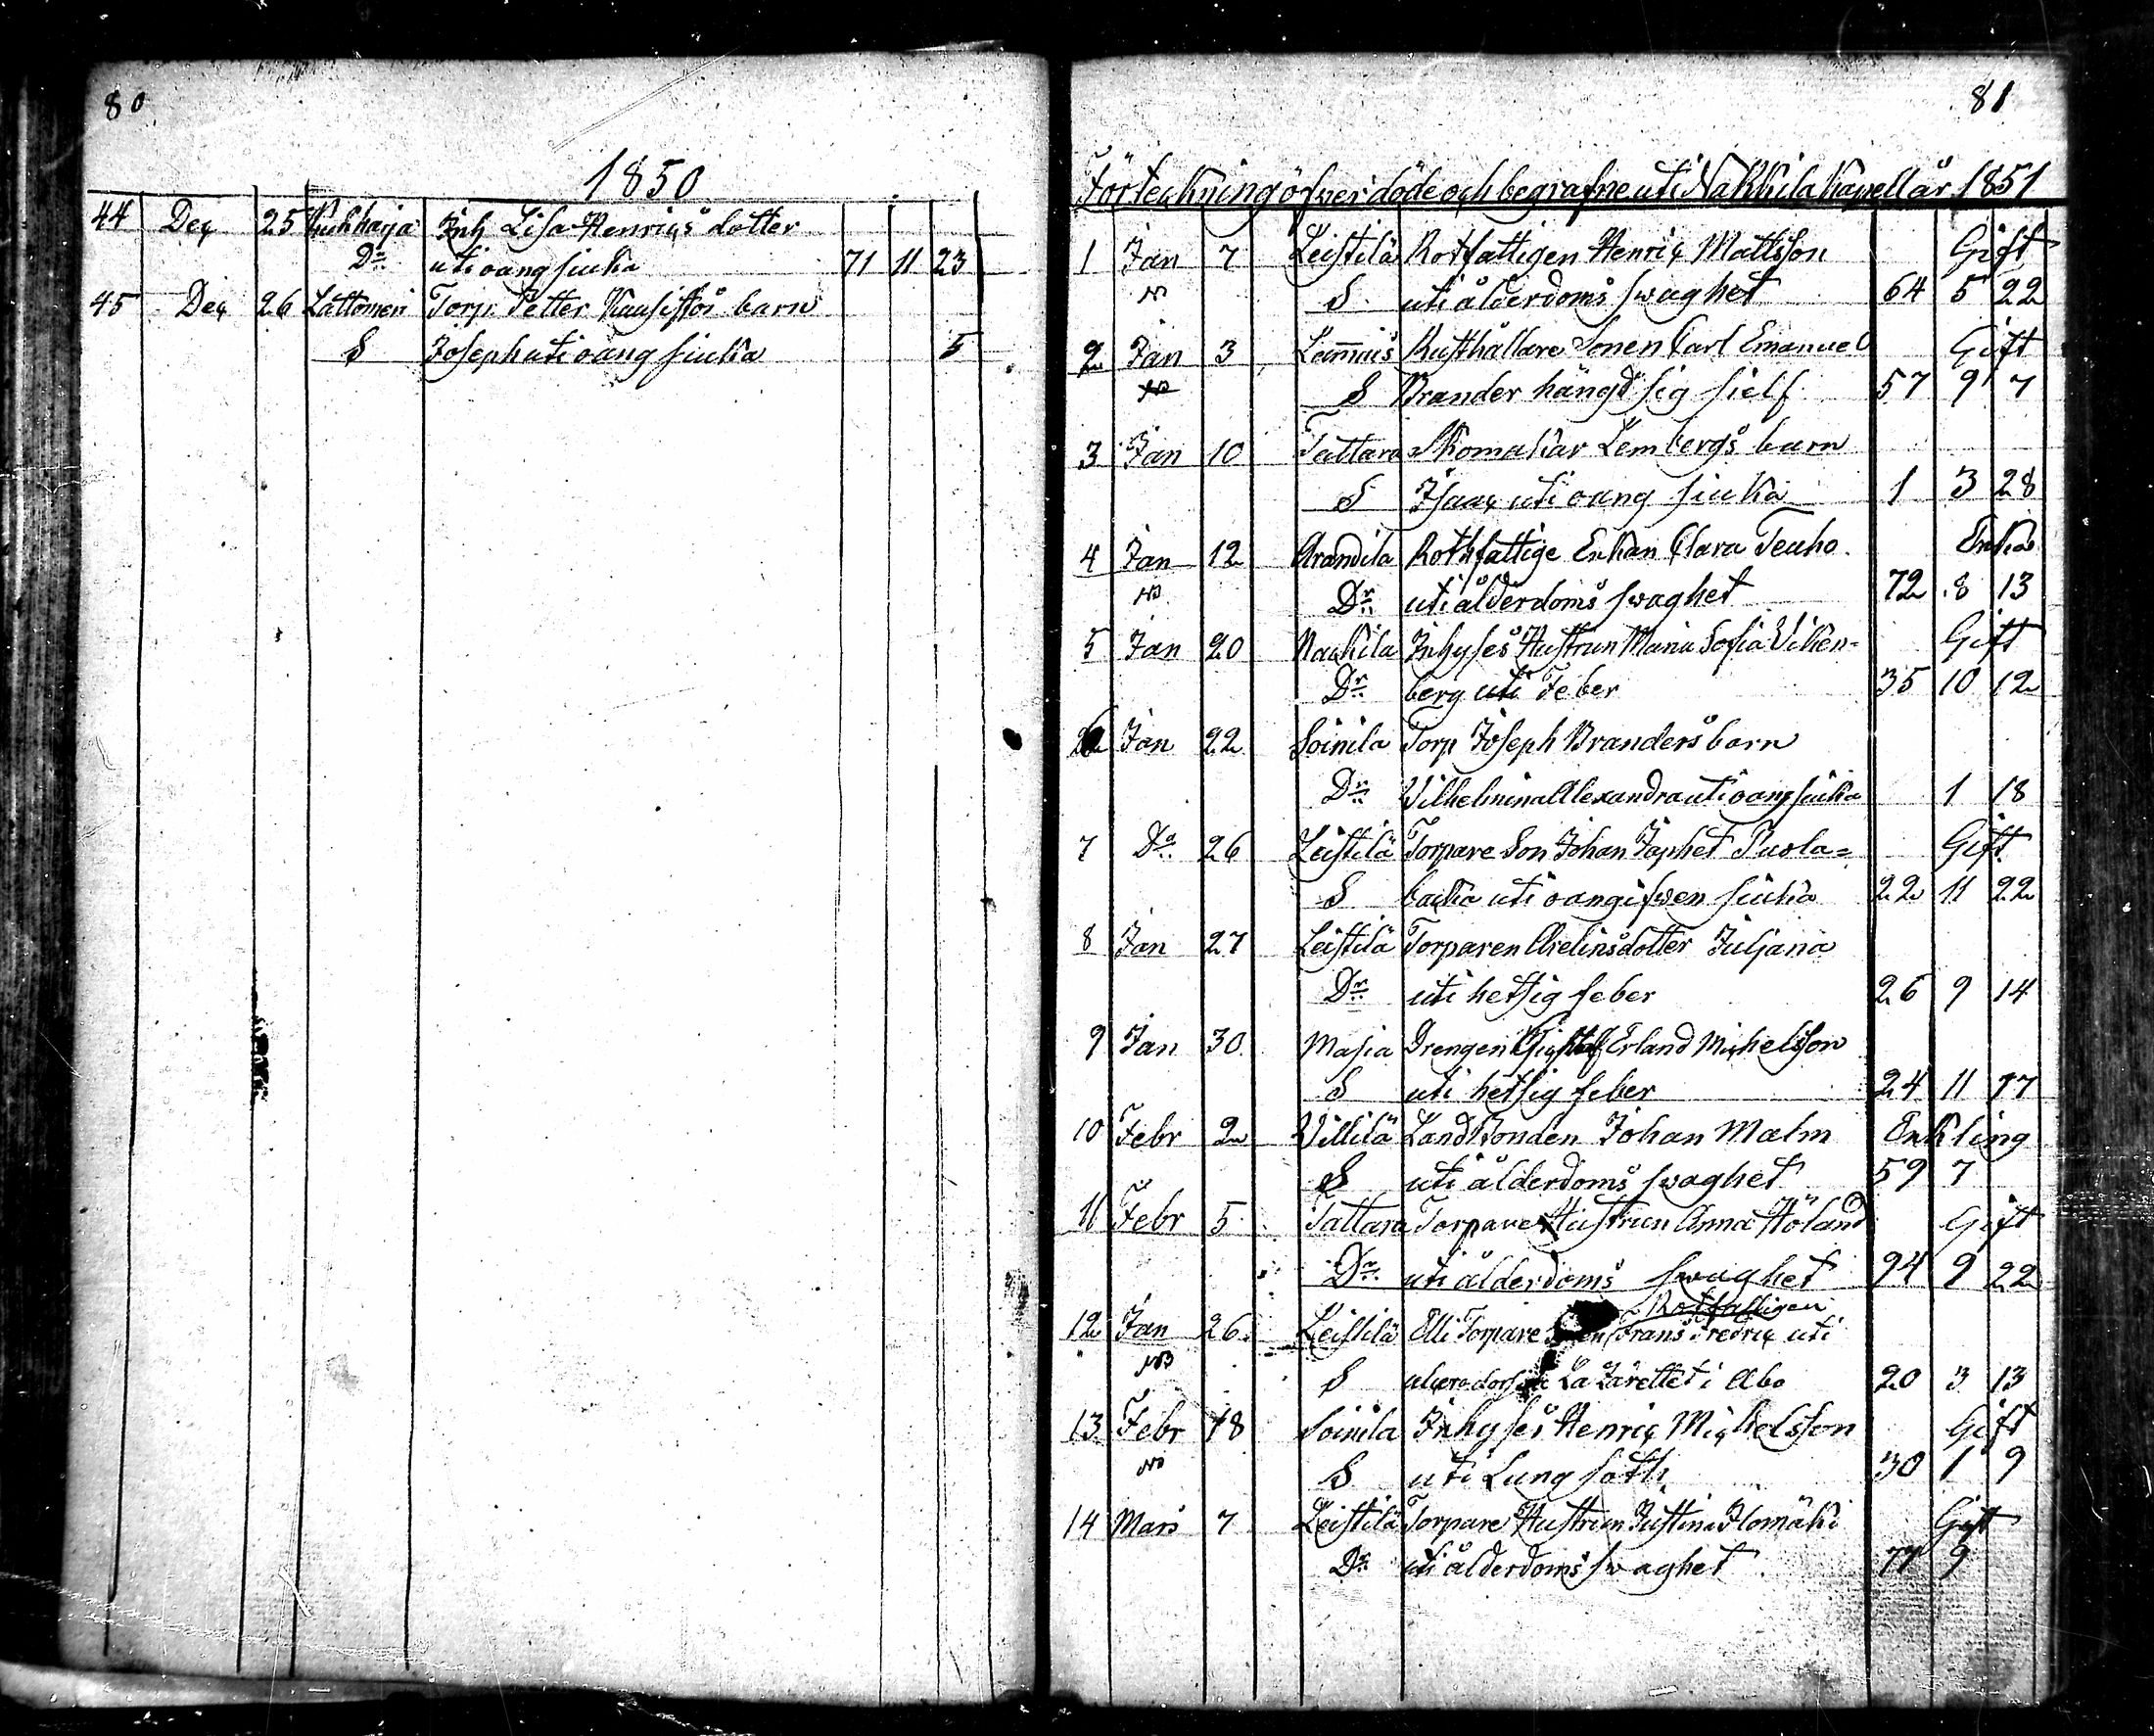 80
1850
44 Dec 25 Kukkarja Inh Lisa Henrics dotter
Dr uti oang siuka 71 11 23
45 Dec 26 Lattomeri Torp. Petter barn
S Joseph uti oang siuka 5
81
Förteckning öfver döde och begrafne uti Nakkila Kapell år 1851
1 Jan 7 Leistilä Rotfattigen Henric Mattsson Gift
S uti ålderdoms swaghet 64 5 22
2 Jan 3 Lammais Rusthållare Sonen Carl Emanuel Gift
S Brander hängd sig sielf 57 9 7
3 Jan 10 Tattara Skomakar Lembergs barn
S Isaac uti oang siuka 1 3 28
4 Jan 12 Arandila Rothfattige Enkan Clara Teuho Enka
NB Dr uti ålderdoms swaghet 72 8 13
5 Jan 20 Nackila Inhyses Hustrun Maria Sofia Viken- Gift
Dr berg uti Feber 35 10 12
Jan 22 Soinila Torp Joseph Branders barn
Dr Vilhelmina Alexandra uti oang siuka 1 18
7 Do 26 Leistilä Torpare Son Johan Japhet Puola= Gift
S backa uti oangifwen siuka 22 11 22
8 Jan 27 Leistilä Torparen Avelins dotter Juljana
Dr uti hetsig feber 26 9 14
9 Jan 30 Masia Drengen Gustaf Erland Michelsson
S uti hetsig feber 24 11 17
10 Febr 2 Villilä Landbonden Johan Malm Enkling
S uti ålderdoms swaghet 59 7
11 Febr 5 Tattara Torpare Hustrun Anna Höland Gift
Dr uti ålderdoms swaghet 94 9 22
Rotfattigen
12 Jan 26 Leistilä Elli Torpare Frans Fredric uti
NB S Lazarettet i Abo 20 3 13
13 Febr 18 Soinila Inhyses Henric Michelsson Gift
S uti Lung soth 30 1 9
14 Mars 7 Leistilä Torpare Hustrun Justina Ilomäki Gift
Dr uti ålderdoms swaghet 77 9